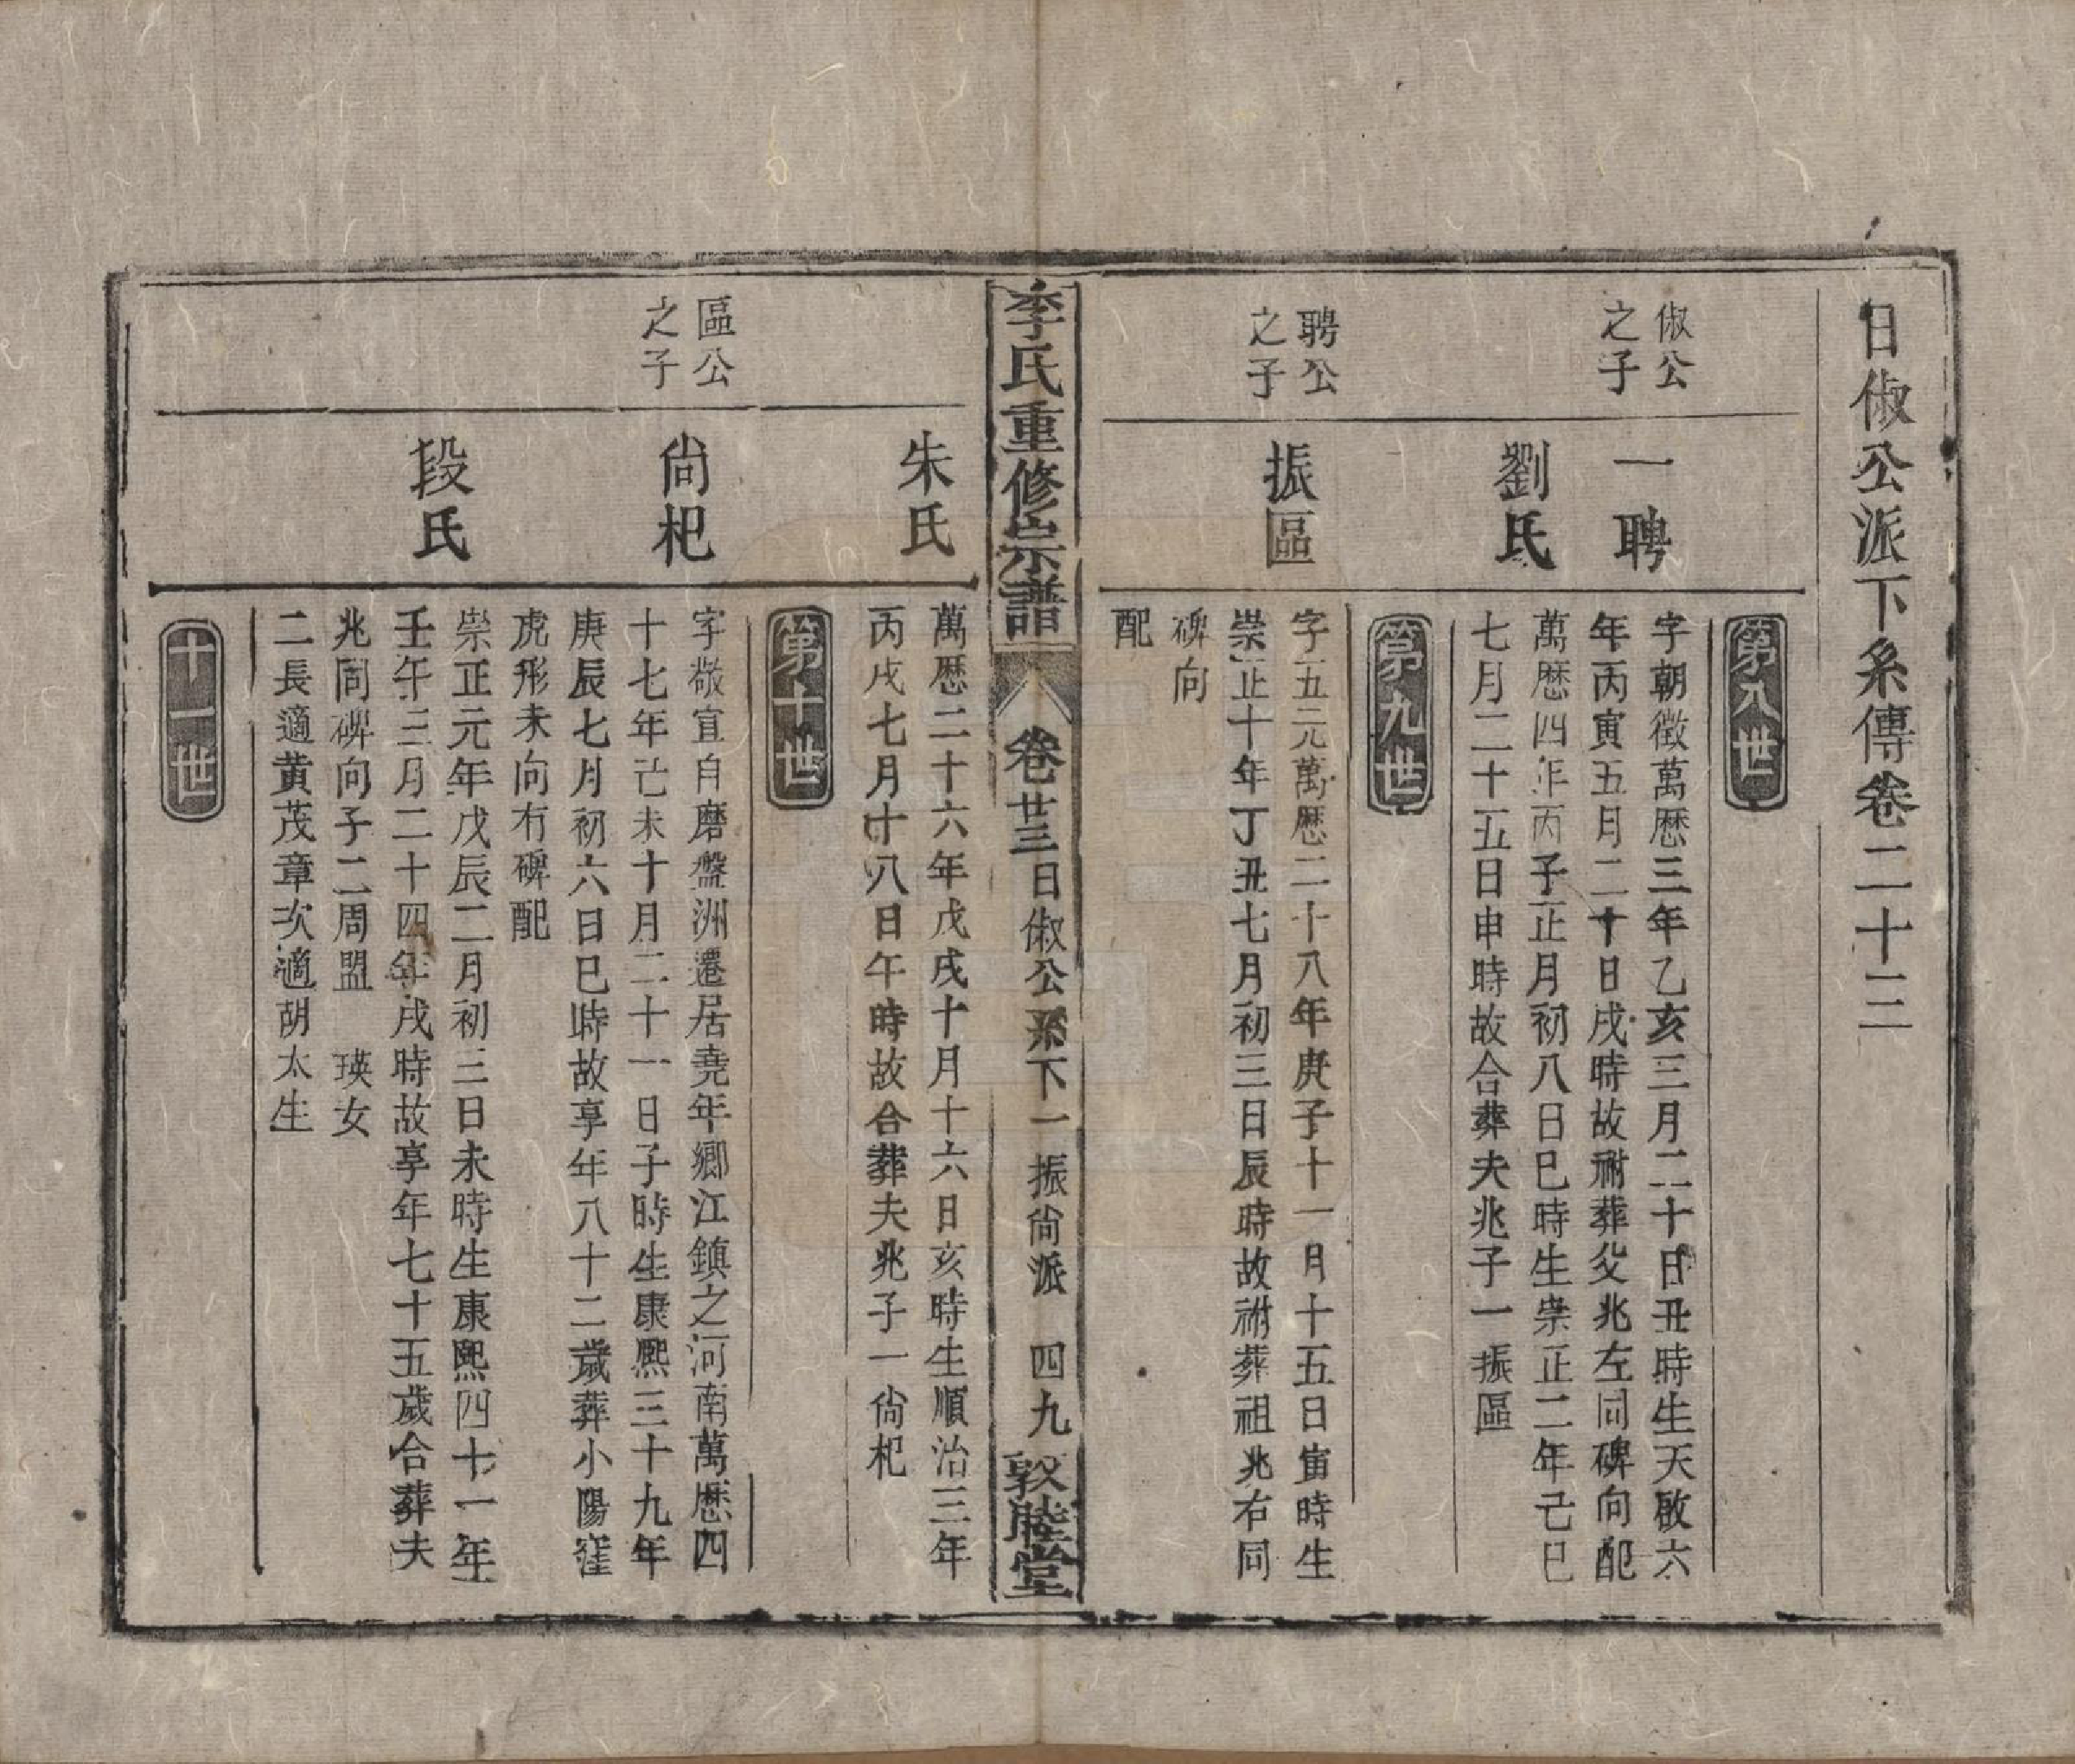 日俶公派下糸傳卷二十三
第八世
俶公之子
一聘
字朝徵萬歷三年乙亥三月二十日丑時生天啟六
年丙寅五月二十日戌時故祔葬父兆左同碑向配
劉氏
萬歷四年丙子正月初八日巳時生崇正二年己巳
七月二十五日申時故合葬夫兆子一振區
第九世
聘公之子
振區
字五元萬歷二十八年庚子十一月十五日寅時生
崇正十年丁丑七月初三日辰時故祔葬祖兆右同
碑向
配
李氏重修宗譜 卷廿三 日俶公系下一 振尙派 四九 敦睦堂
朱氏
萬歷二十六年戊戌十月十六日亥時生順治三年
丙戌七月十八日午時故合葬夫兆子一尙杞
第十世
區公之子
尙杞
字敬宜自磨盤洲遷居堯年鄉江鎮之河南萬歷四
十七年己未十月二十一日子時生康熙三十九年
庚辰七月初六日巳時故享年八十二歲葬小陽窪
虎形未向有碑配
段氏
崇正元年戊辰二月初三日未時生康熙四十一年
壬午三月二十四年戌時故享年七十五歲合葬夫
兆同碑向子二周盟 瑛女
二長適黃茂章次適胡太生
十一世